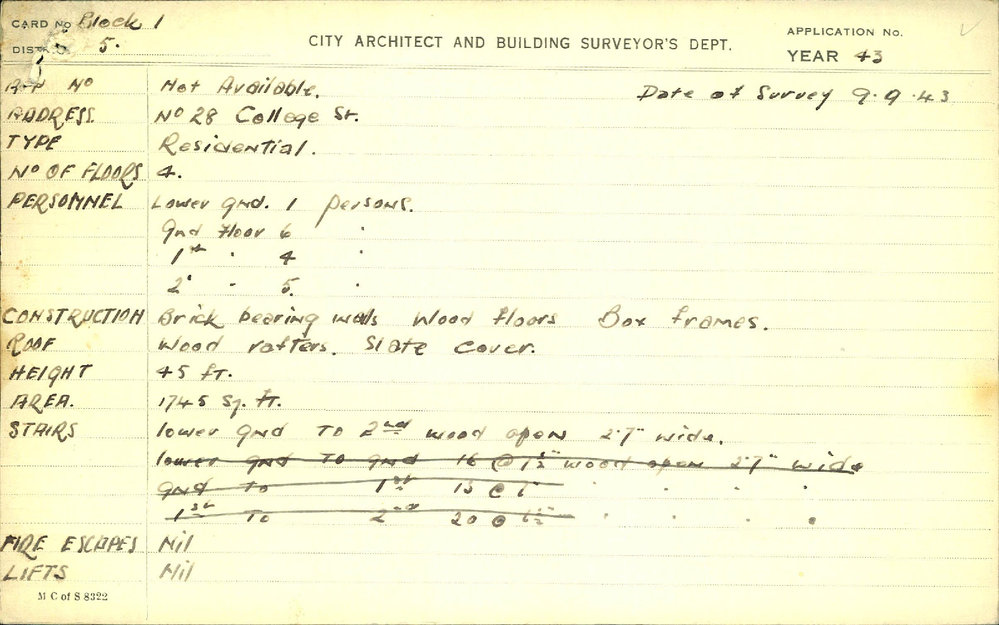 CARD No Block 1
DIST. 5.
CITY ARCHITECT AND BUILDING SURVEYOR'S DEPT.
APPLICATION No.
YEAR 43
APP No Not Available. Date of Survey 9.9.43
ADDRESS. No 28 College St.
TYPE Residential.
No OF FLOORS 4.
PERSONNEL Lower gnd. 1 persons.
Gnd Floor 6 "
1st " 4 "
2" " 5. "
CONSTRUCTION Brick bearing walls Wood floors Box frames.
ROOF Wood rafters. Slate cover.
HEIGHT 45 ft.
AREA. 1745 Sq. ft.
STAIRS lower gnd TO 2nd wood open 2'7" wide.
lower gnd TO gnd 16 @ wood open 2'7" wide
gnd To 1st 15 @
1st To 2nd 20 @ 6½"
FIRE ESCAPES Nil
LIFTS Nil
M C of S 8322